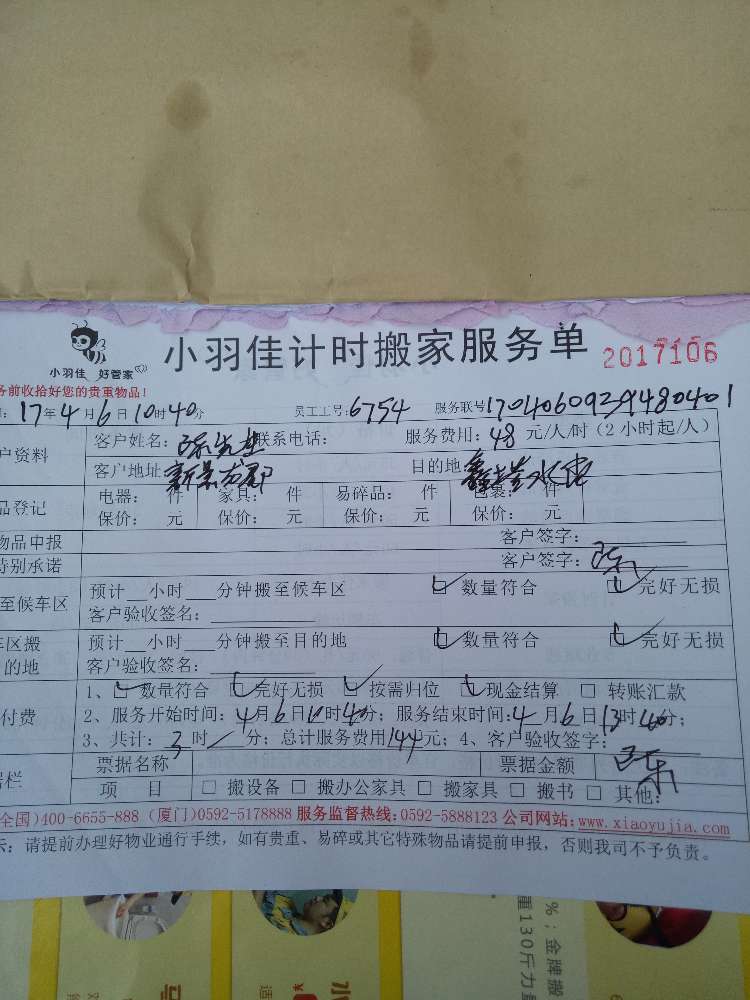 小羽佳 好管家
小羽佳计时搬家服务单 2017106
务前收拾好您的贵重物品!
17年4月6日10时40分 员工工号:6754 服务联号1704060929480401
户资料 客户姓名:陈先生 联系电话: 服务费用:48元/人/时(2小时起/人)
客户地址 新景龙郡 目的地
品登记 电器: 件 家具: 件 易碎品: 件 包裹: 件
保价: 元 保价: 元 保价: 元 保价: 元
物品申报 客户签字:
特别承诺 客户签字: 陈
至候车区 预计__小时___分钟搬至候车区 ☑ 数量符合 ☑ 完好无损
客户验收签名:
车区搬 预计__小时___分钟搬至目的地 ☑ 数量符合 ☑ 完好无损
的地 客户验收签名:
付费 1、☑ 数量符合 ☑ 完好无损 ☑ 按需归位 ☑ 现金结算 □ 转账汇款
2、服务开始时间:4月6日10时40分;服务结束时间:4月6日13时40分;
3、共计:3时/分;总计服务费用144元;4、客户验收签字: 陈
据栏 票据名称 票据金额
项 目 □ 搬设备 □ 搬办公家具 □ 搬家具 □ 搬书 □ 其他:
全国)400-6655-888 (厦门)0592-5178888 服务监督热线:0592-5888123 公司网站:www.xiaoyujia.com
示:请提前办理好物业通行手续,如有贵重、易碎或其它特殊物品请提前申报,否则我司不予负责。
%;金牌搬
重130斤力